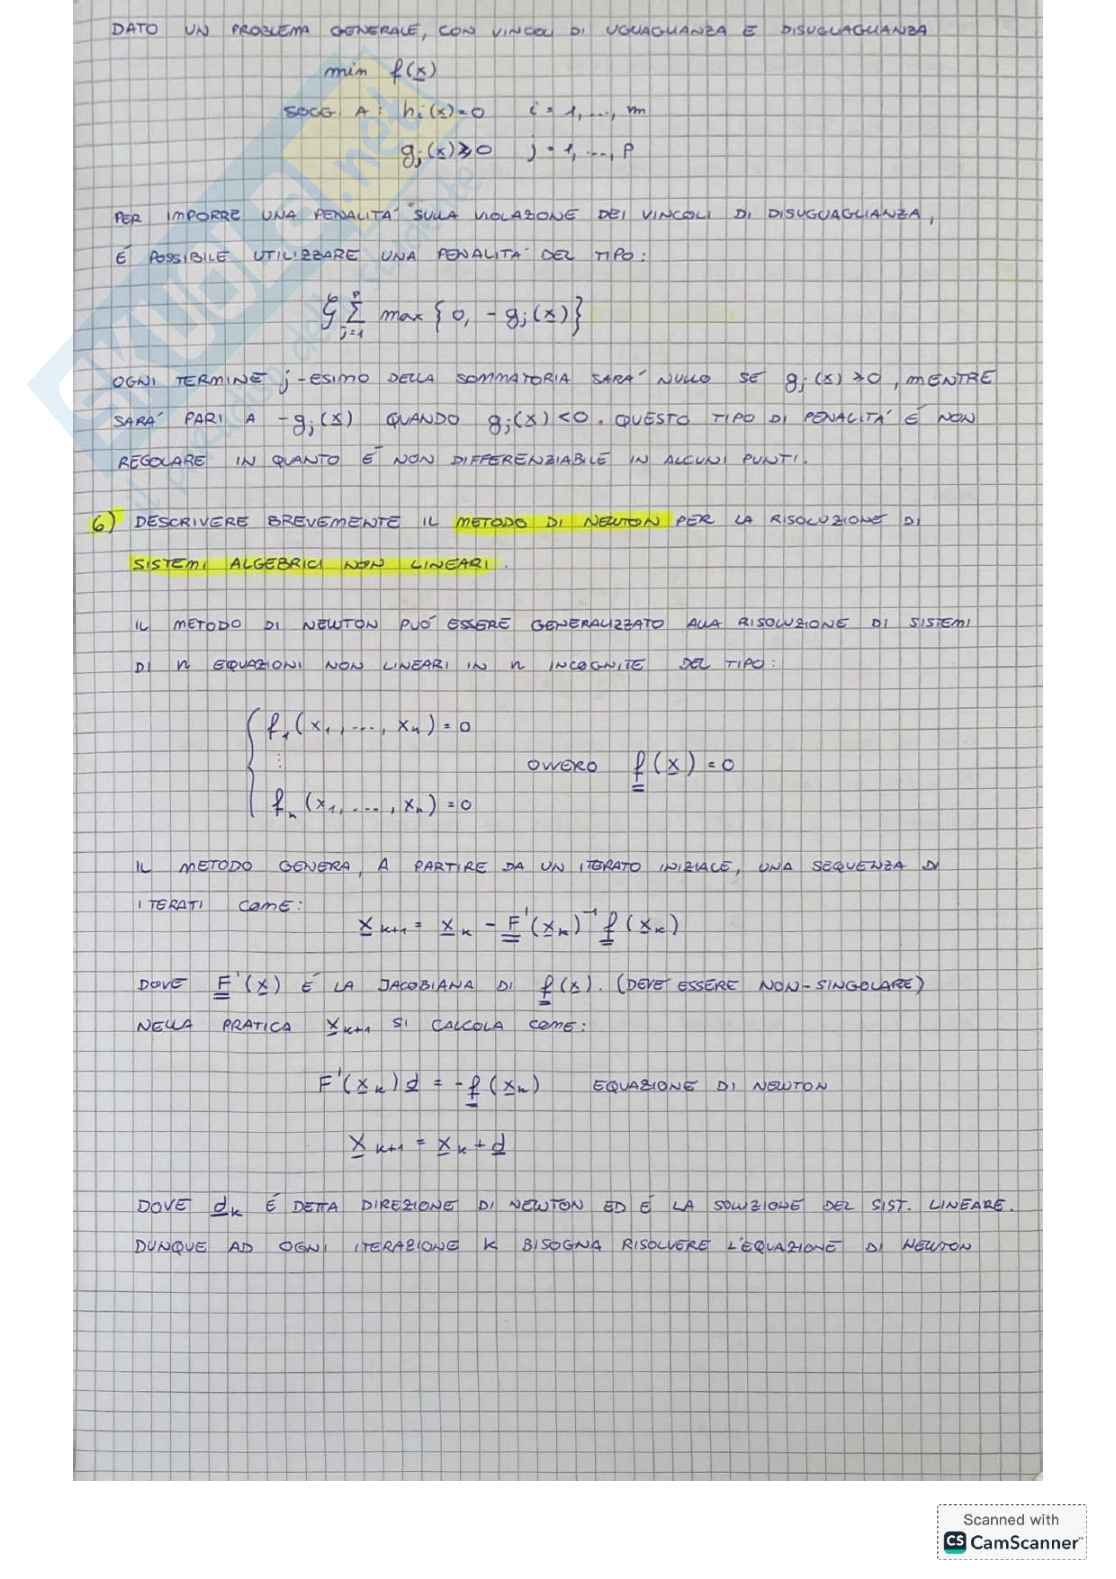 DATO UN PROBLEMA GENERALE, CON VINCOLI DI UGUAGLIANZA E DISUGUAGLIANZA
min f(x)
SOGG. A: hᵢ(x)=0 i = 1, ..., m
gⱼ(x)≥0 j = 1, ..., p
PER IMPORRE UNA PENALITA' SULLA VIOLAZIONE DEI VINCOLI DI DISUGUAGLIANZA,
É POSSIBILE UTILIZZARE UNA PENALITA' DEL TIPO:
Σ max { 0, - gⱼ(x)}
p
j=1
OGNI TERMINE j-ESIMO DELLA SOMMATORIA SARA' NULLO SE gⱼ(x) ≥0, MENTRE
SARA' PARI A -gⱼ(x) QUANDO gⱼ(x) <0. QUESTO TIPO DI PENALITA' É NON
REGOLARE IN QUANTO É NON DIFFERENZIABILE IN ALCUNI PUNTI.
6) DESCRIVERE BREVEMENTE IL METODO DI NEWTON PER LA RISOLUZIONE DI
SISTEMI ALGEBRICI NON LINEARI.
IL METODO DI NEWTON PUÓ ESSERE GENERALIZZATO ALLA RISOLUZIONE DI SISTEMI
DI n EQUAZIONI NON LINEARI IN n INCOGNITE DEL TIPO:
f₁(x₁, ..., xₙ) = 0
⋮
OVVERO f(x) = 0
fₙ(x₁, ..., xₙ) = 0
IL METODO GENERA, A PARTIRE DA UN ITERATO INIZIALE, UNA SEQUENZA DI
ITERATI COME:
xₖ₊₁ = xₖ - F'(xₖ)⁻¹ f(xₖ)
DOVE F'(x) É LA JACOBIANA DI f(x). (DEVE ESSERE NON-SINGOLARE)
NELLA PRATICA xₖ₊₁ SI CALCOLA COME:
F'(xₖ)d = -f(xₖ) EQUAZIONE DI NEWTON
xₖ₊₁ = xₖ + d
DOVE dₖ É DETTA DIREZIONE DI NEWTON ED É LA SOLUZIONE DEL SIST. LINEARE.
DUNQUE AD OGNI ITERAZIONE K BISOGNA RISOLVERE L'EQUAZIONE DI NEWTON
SKUOLA.net
Scanned with
CS CamScanner